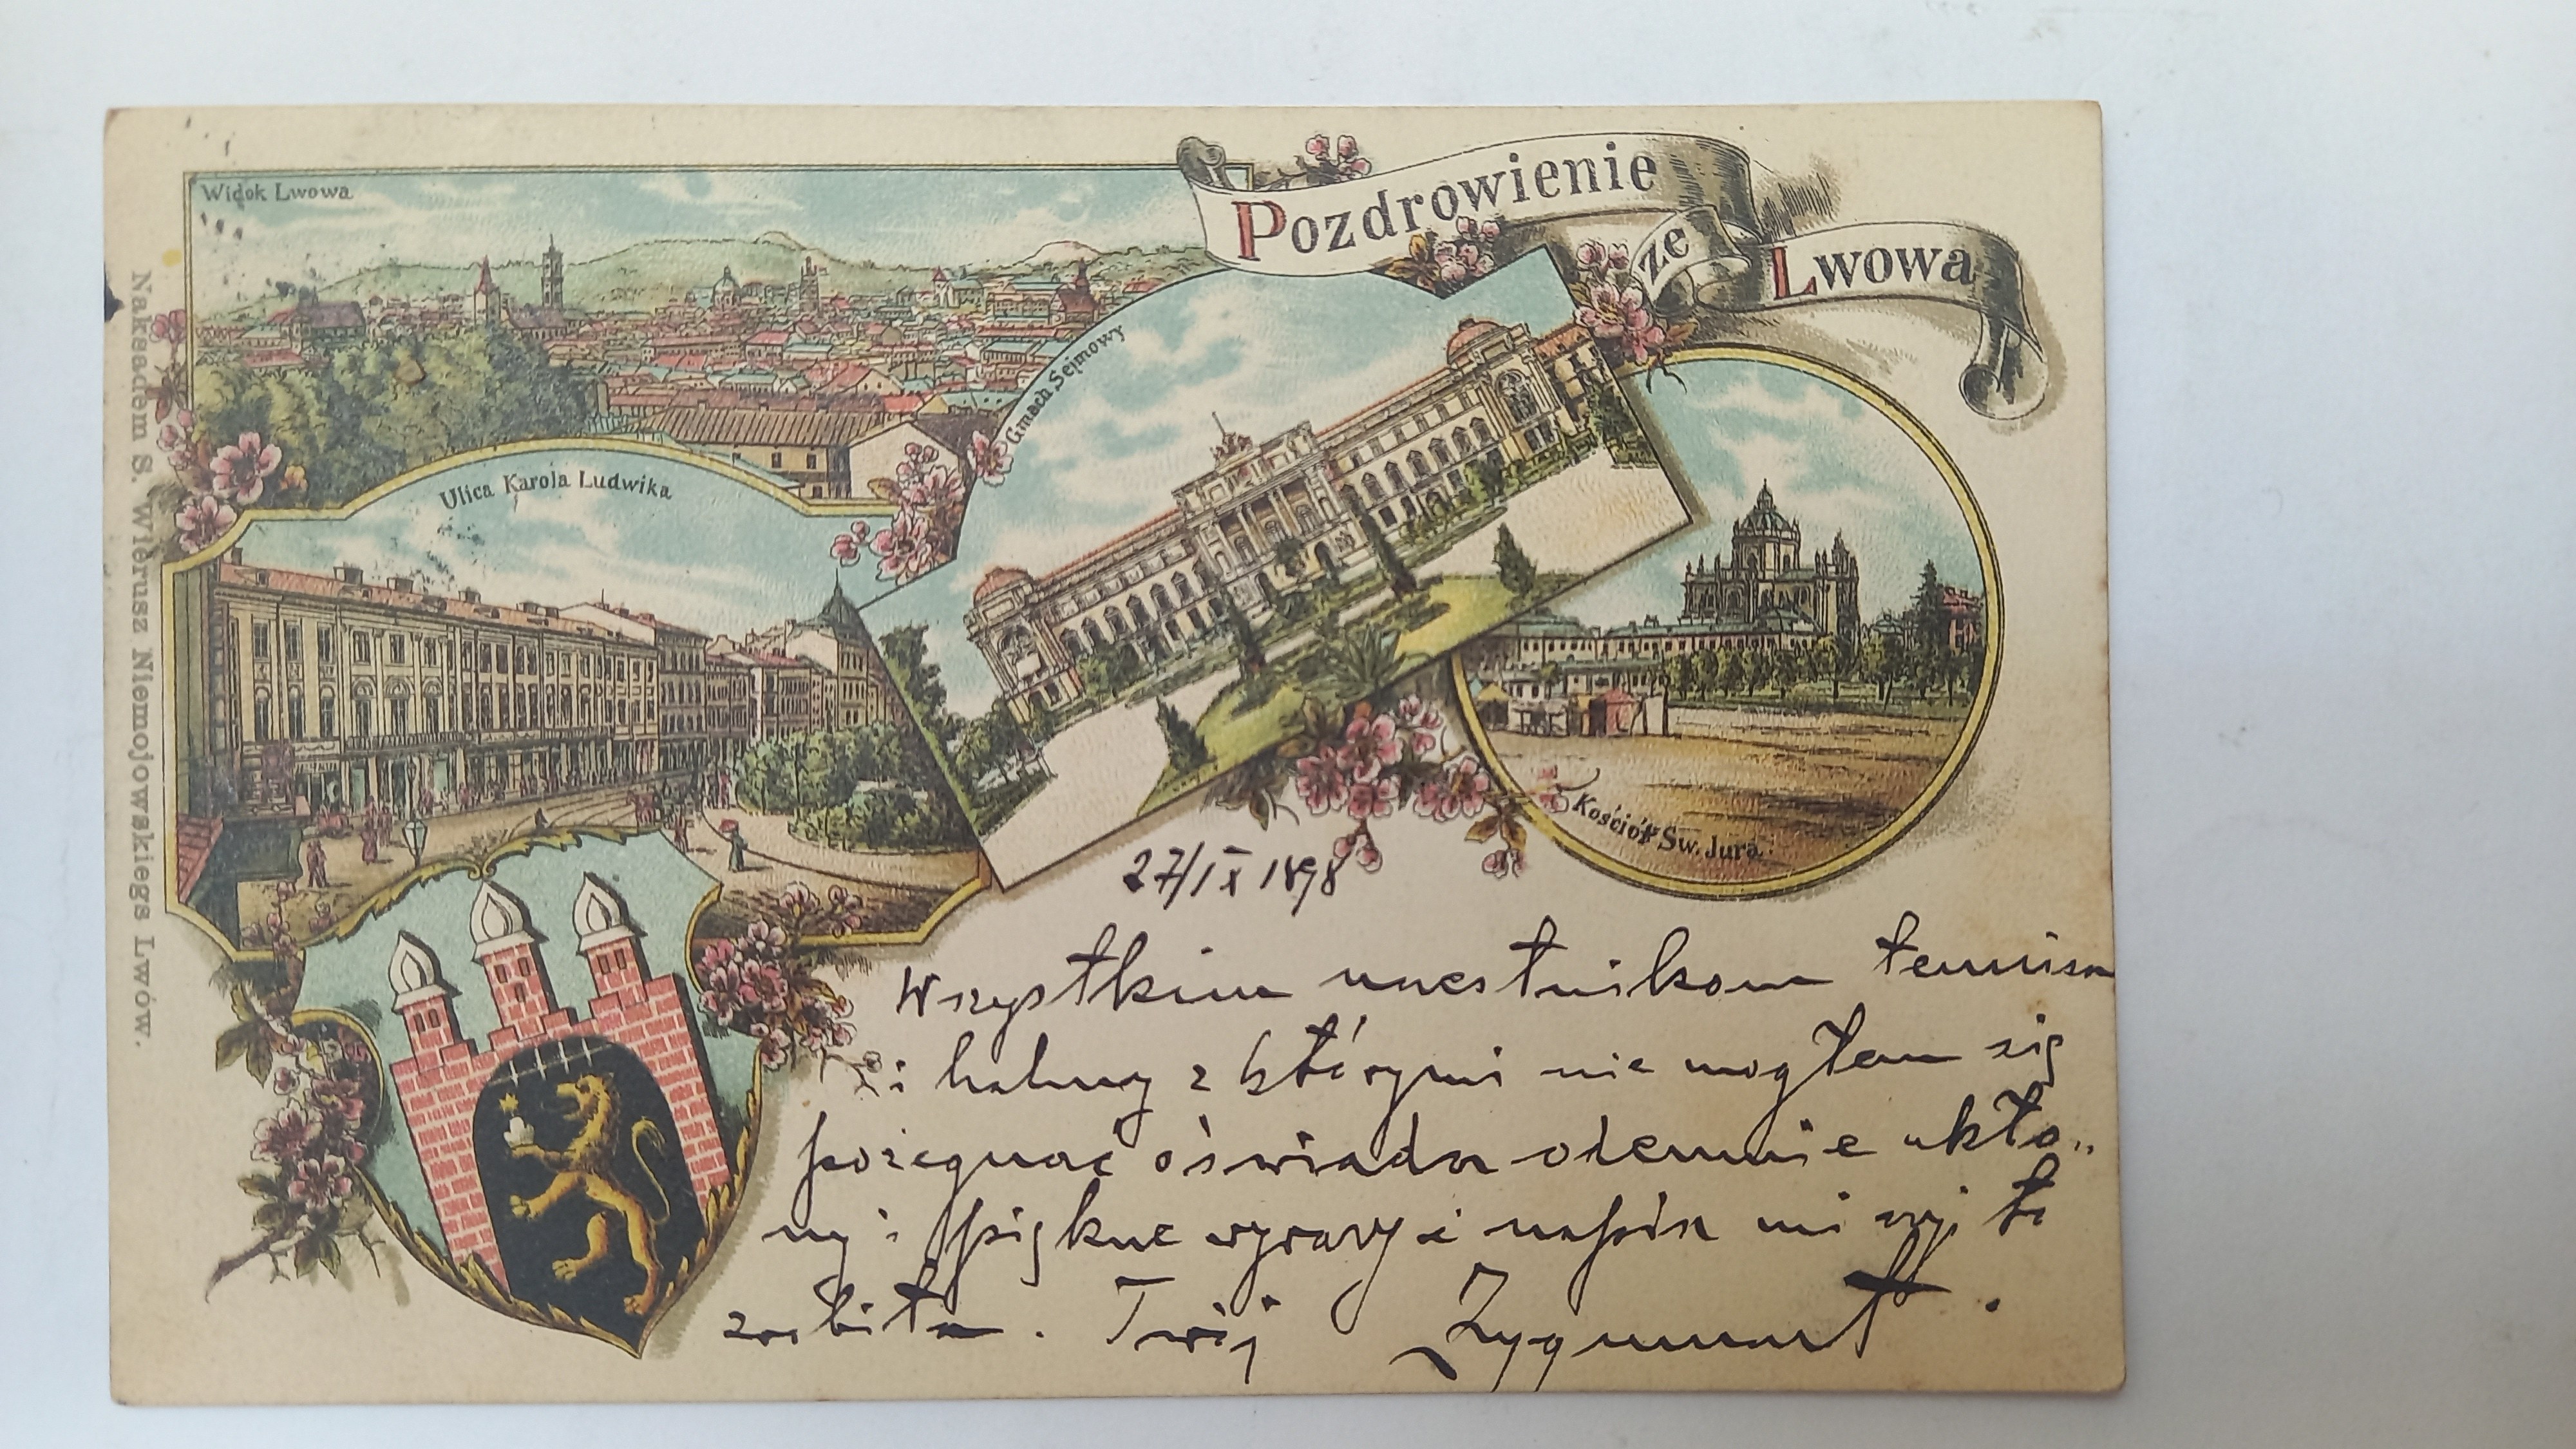 Pozdrowienie
ze Lwowa
Widok Lwowa
Gmach Sejmowy
Ulica Karola Ludwika
Kościół Sw. Jura.
Nakładem S. Wierusz Niemojowskiego Lwów.
27/IX 1898
Wszystkim uczestnikom tennisa
i z którymi nie mogłem się
pożegnać oświadcz odemnie ukło„
ny i piękne wyrazy i napisz mi czyś to
zrobiła. Twój Zygmunt.